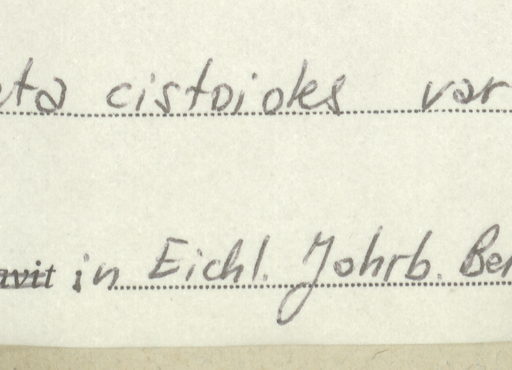 eta cistoides var
avit in Eichl. Jahrb. Ber